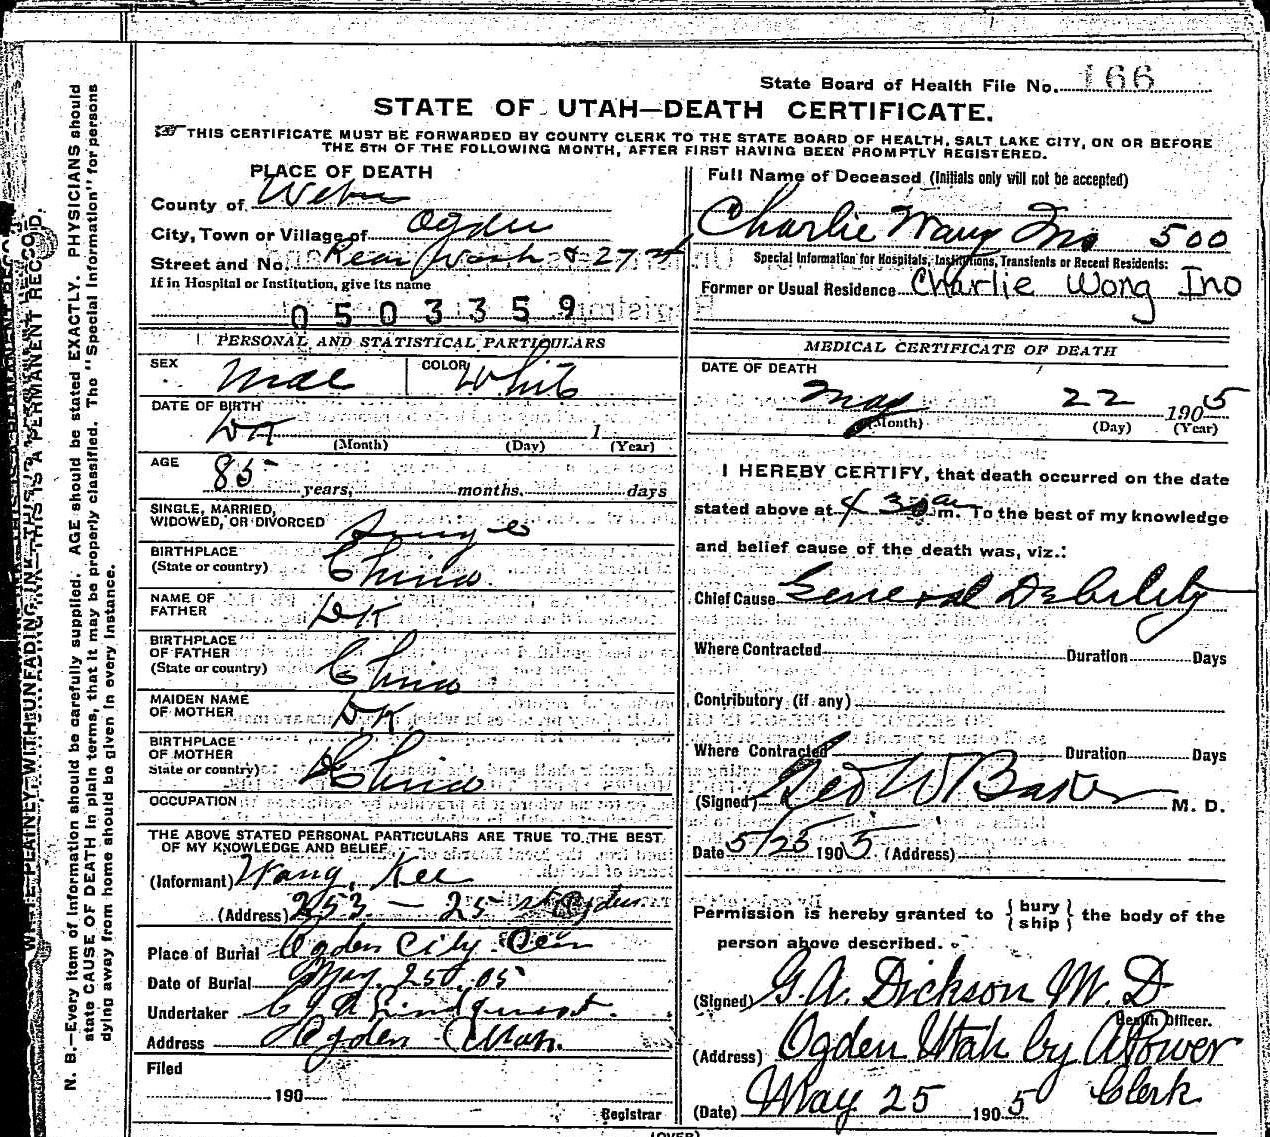 State Board of Health File No. 166
STATE OF UTAH—DEATH CERTIFICATE.
THIS CERTIFICATE MUST BE FORWARDED BY COUNTY CLERK TO THE STATE BOARD OF HEALTH, SALT LAKE CITY, ON OR BEFORE
THE 5TH OF THE FOLLOWING MONTH, AFTER FIRST HAVING BEEN PROMPTLY REGISTERED.
PLACE OF DEATH
County of Weber
City, Town or Village of Ogden
Street and No. Rear Wash & 27th
If in Hospital or Institution, give its name
0503359
Full Name of Deceased (Initials only will not be accepted)
Charlie Wang Ino 500
Special Information for Hospitals, Institutions, Transients or Recent Residents:
Former or Usual Residence Charlie Wong Ino
PERSONAL AND STATISTICAL PARTICULARS
SEX Male COLOR White
DATE OF BIRTH DK
(Month) (Day) 1 (Year)
AGE 85 years, months, days
SINGLE, MARRIED,
WIDOWED, OR DIVORCED Single
BIRTHPLACE
(State or country) China
NAME OF
FATHER DK
BIRTHPLACE
OF FATHER
(State or country) China
MAIDEN NAME
OF MOTHER DK
BIRTHPLACE
OF MOTHER
State or country) China
OCCUPATION
THE ABOVE STATED PERSONAL PARTICULARS ARE TRUE TO THE BEST
OF MY KNOWLEDGE AND BELIEF
(Informant) Wang Kee
(Address) 253 — 25 st Ogden
Place of Burial Ogden City Cem
Date of Burial May 25 05
Undertaker Lindquist
Address Ogden Utah.
Filed
190
Registrar
MEDICAL CERTIFICATE OF DEATH
DATE OF DEATH
May 22 1905
(Month) (Day) (Year)
I HEREBY CERTIFY, that death occurred on the date
stated above at 4 30 am. To the best of my knowledge
and belief cause of the death was, viz.:
Chief Cause General Debility
Where Contracted Duration Days
Contributory (if any)
Where Contracted Duration Days
(Signed) Geo W Baker M. D.
Date 5/25 1905. (Address)
Permission is hereby granted to {bury
ship} the body of the
person above described.
(Signed) G.A. Dickson M.D
Health Officer.
(Address) Ogden Utah by A Power
Clerk
(Date) May 25 1905
(OVER)
N. B.—Every item of information should be carefully supplied. AGE should be stated EXACTLY. PHYSICIANS should
state CAUSE OF DEATH in plain terms, that it may be properly classified. The "Special Information" for persons
dying away from home should be given in every instance.
WRITE PLAINLY WITH UNFADING INK—THIS IS A PERMANENT RECORD.